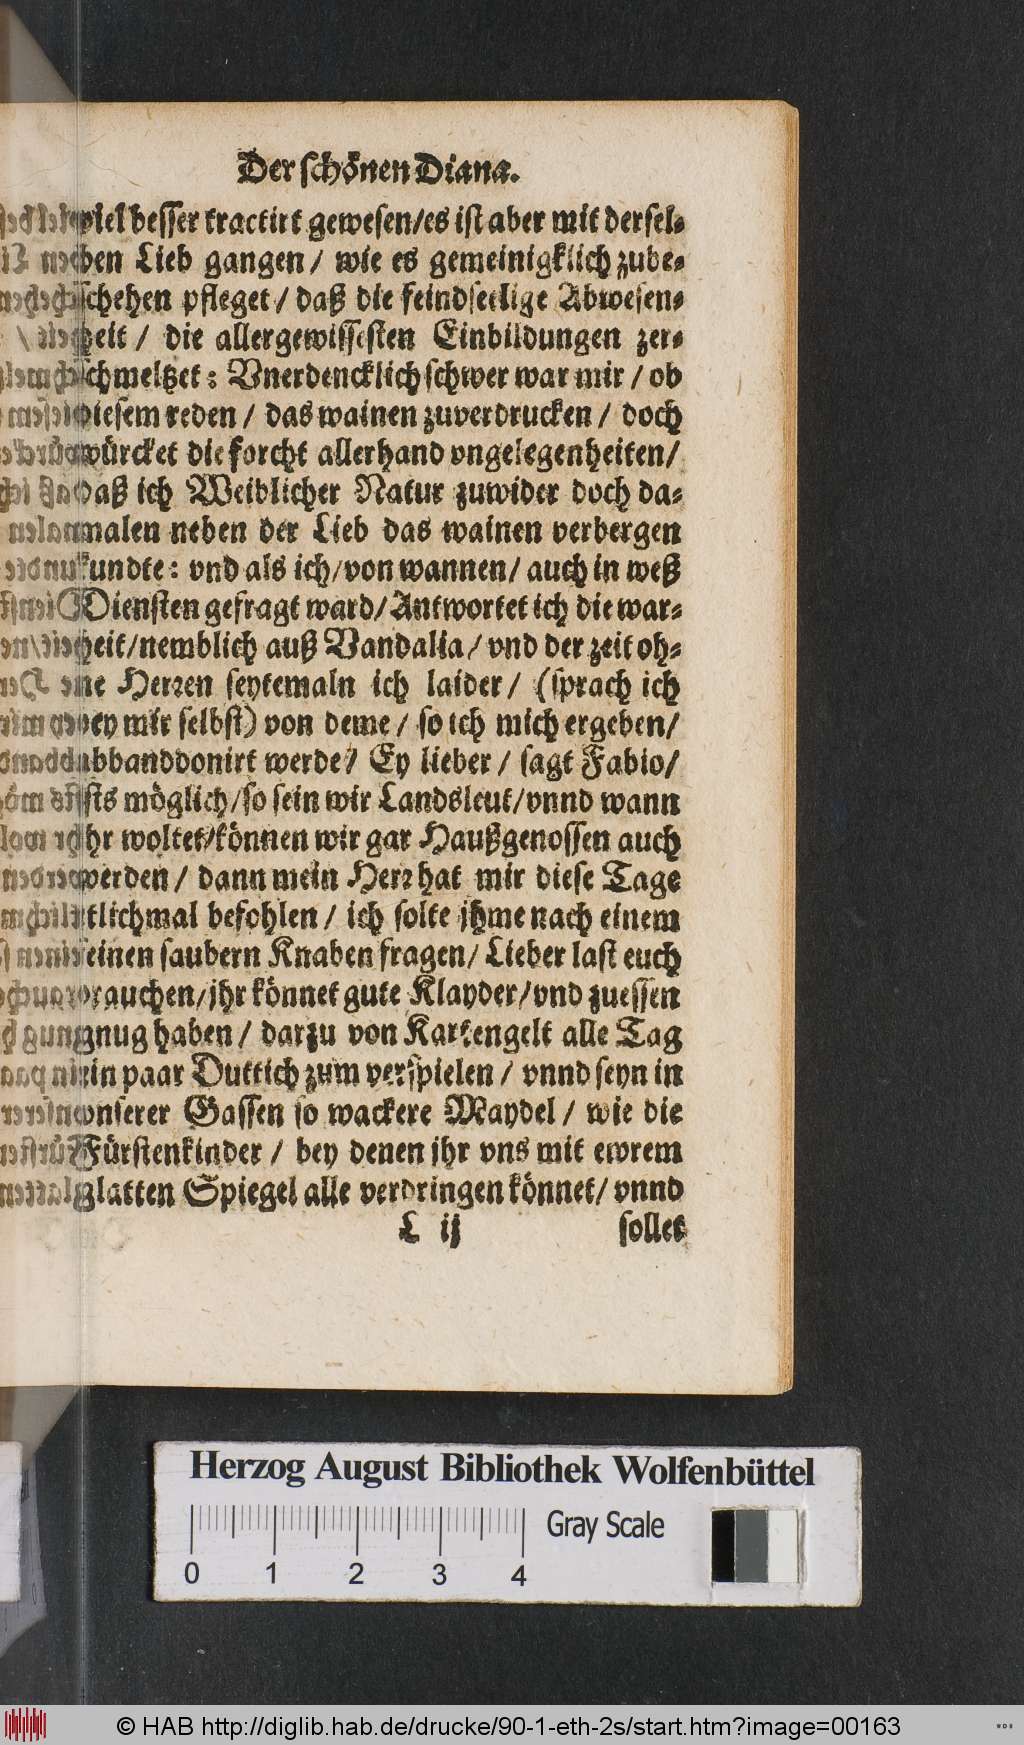 Der schönen Diana.
viel besser tractirt gewesen/es ist aber mit dersel-
ben Lieb gangen / wie es gemeinigklich zube-
schehen pfleget / daß die feindseelige Abwesen-
heit / die allergewissesten Einbildungen zer-
schmeltzet: Vnerdencklich schwer war mir / ob
diesem reden / das wainen zuverdrucken / doch
würcket die forcht allerhand vngelegenheiten/
daß ich Weiblicher Natur zuwider doch da-
malen neben der Lieb das wainen verbergen
kundte: vnd als ich/von wannen/ auch in weß
Diensten gefragt ward/Antwortet ich die war-
heit/nemblich auß Vandalia/ vnd der zeit oh-
ne Herren seytemaln ich laider / (sprach ich
bey mir selbst) von deme / so ich mich ergeben/
abbanddonirt werde/ Ey lieber / sagt Fabio/
ists möglich/so sein wir Landsleut/vnnd wann
jhr woltet/können wir gar Haußgenossen auch
werden / dann mein Herr hat mir diese Tage
etlichmal befohlen / ich solte jhme nach einem
feinen saubern Knaben fragen/ Lieber last euch
brauchen/jhr könnet gute Klayder/vnd zuessen
gnug haben / darzu von Kartengelt alle Tag
ein paar Duttich zum verspielen / vnnd seyn in
vnserer Gassen so wackere Maydel / wie die
Fürstenkinder / bey denen jhr vns mit ewrem
glatten Spiegel alle verdringen könnet/ vnnd
L ij sollet
Herzog August Bibliothek Wolfenbüttel
0 1 2 3 4 Gray Scale
© HAB http://diglib.hab.de/drucke/90-1-eth-2s/start.htm?image=00163